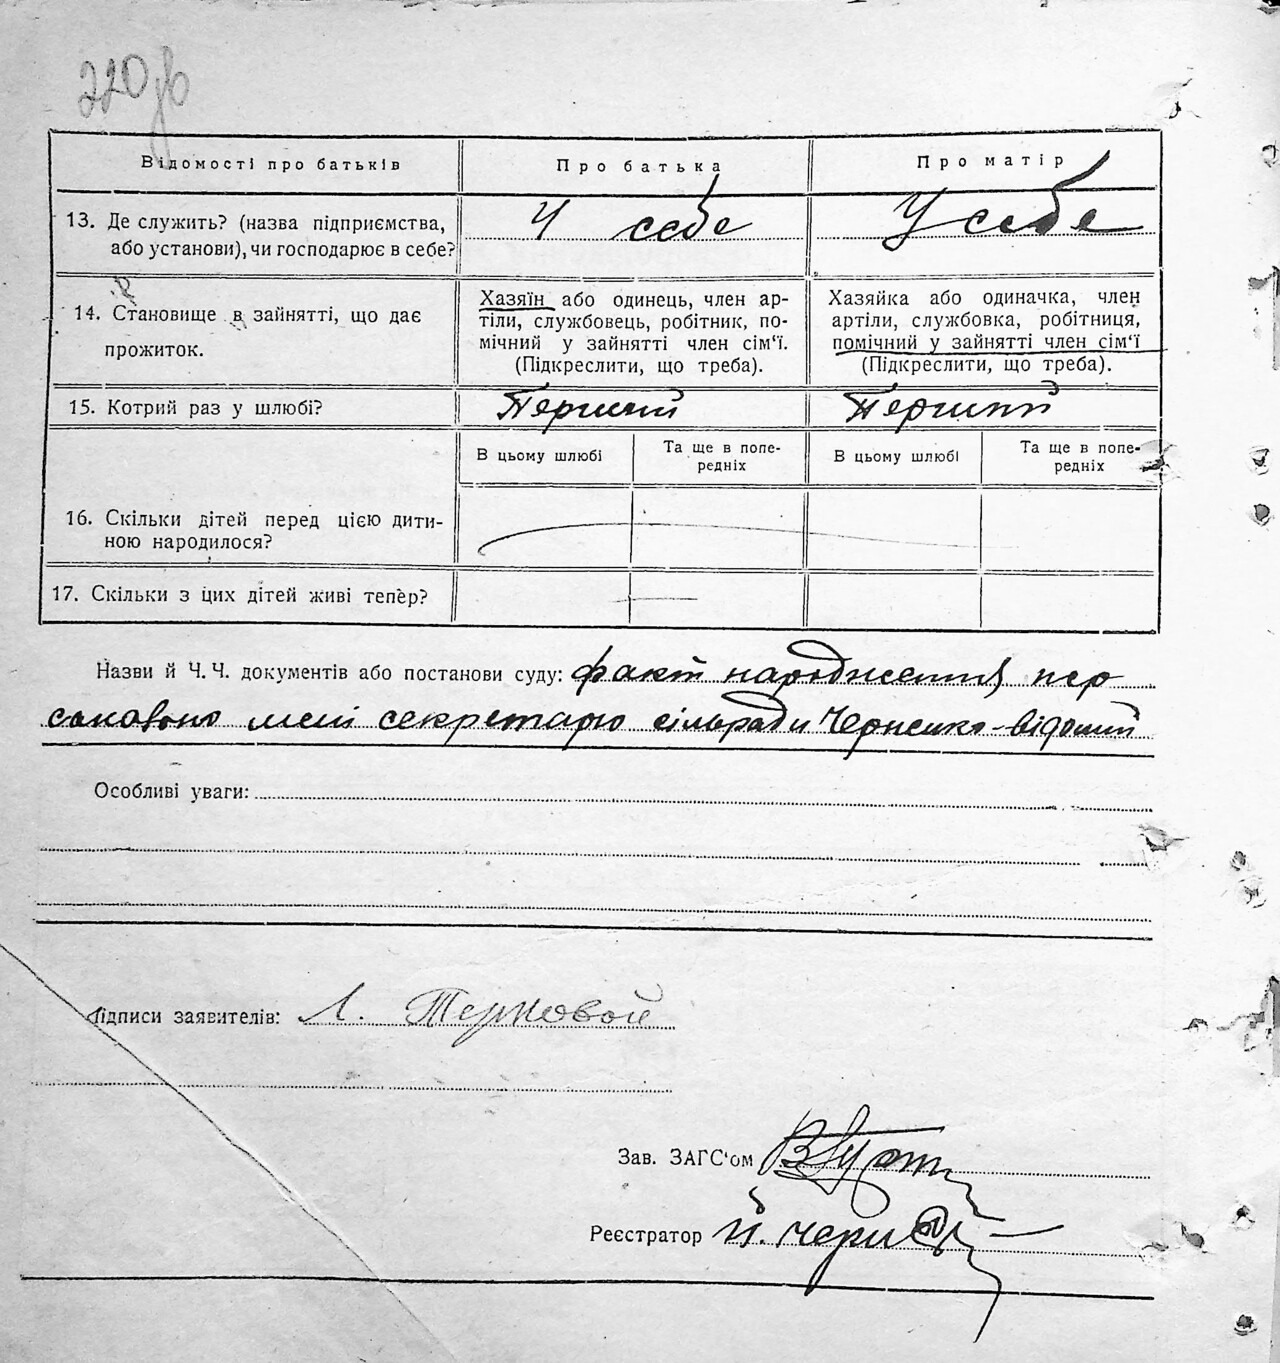 220 зв
Відомості про батьків
Про батька
Про матір
13. Де служить? (назва підприємства,
або установи), чи господарює в себе?
У себе
У себе
14. Становище в зайнятті, що дає
прожиток.
Хазяїн або одинець, член ар-
тіли, службовець, робітник, по-
мічний у зайнятті член сім'ї.
(Підкреслити, що треба).
Хазяйка або одиначка, член
артіли, службовка, робітниця,
помічний у зайнятті член сім'ї
(Підкреслити, що треба).
15. Котрий раз у шлюбі?
Перший
Перший
В цьому шлюбі
Та ще в попе-
редніх
В цьому шлюбі
Та ще в попе-
редніх
16. Скільки дітей перед цією дити-
ною народилося?
17. Скільки з цих дітей живі тепер?
Назви й Ч. Ч. документів або постанови суду: факт народження, пер
сонально мені секретарю сільради Черненко-відомий
Особливі уваги:
Підписи заявителів: Л. Терновой
Зав. ЗАГС'ом
Реєстратор Й. Черн